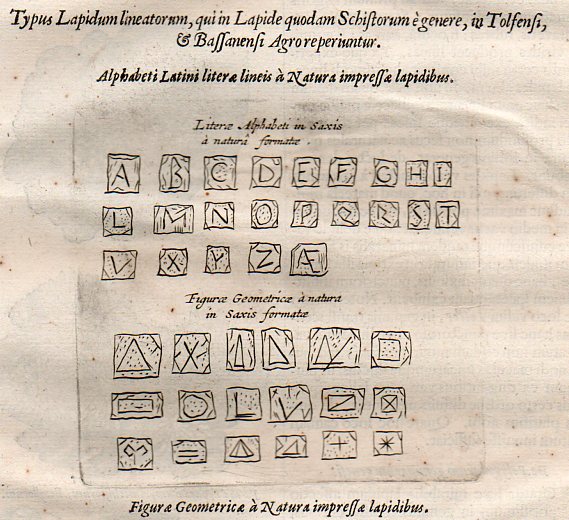 Typus Lapidum lineatorum, qui in Lapide quodam Schistorum è genere, in Tolfensi,
& Bassanensi Agro reperiuntur.
Alphabeti Latini literæ lineis à Natura impressæ lapidibus.
Literæ Alphabeti in Saxis
à naturâ formatæ.
A B C D E F G H I
L M N O P Q R S T
V X Y Z Æ
Figuræ Geometricæ à natura
in Saxis formatæ
Figuræ Geometricæ à Natura impressæ lapidibus.